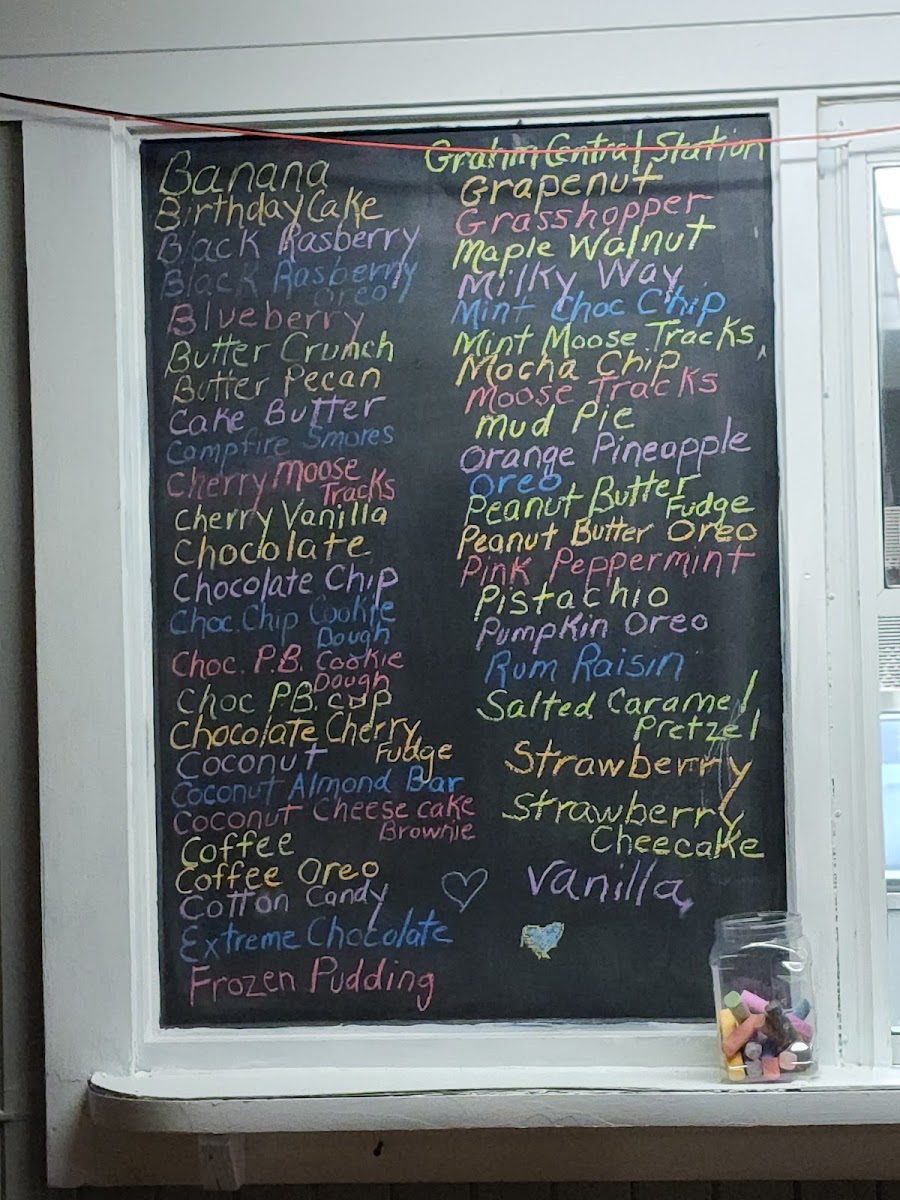 Banana
Birthday Cake
Black Rasberry
Black Rasberry
Oreo
Blueberry
Butter Crunch
Butter Pecan
Cake Butter
Campfire Smores
Cherry Moose
Tracks
Cherry Vanilla
Chocolate
Chocolate Chip
Choc. Chip Cookie
Dough
Choc. P.B. Cookie
Dough
Choc P.B. cup
Chocolate Cherry
Fudge
Coconut
Coconut Almond Bar
Coconut Cheese cake
Brownie
Coffee
Coffee Oreo
Cotton Candy
Extreme Chocolate
Frozen Pudding
Grahm Central Station
Grapenut
Grasshopper
Maple Walnut
Milky Way
Mint Choc Chip
Mint Moose Tracks
Mocha Chip
Moose Tracks
Mud Pie
Orange Pineapple
Oreo
Peanut Butter
Fudge
Peanut Butter Oreo
Pink Peppermint
Pistachio
Pumpkin Oreo
Rum Raisin
Salted Caramel
Pretzel
Strawberry
Strawberry
Cheecake
Vanilla